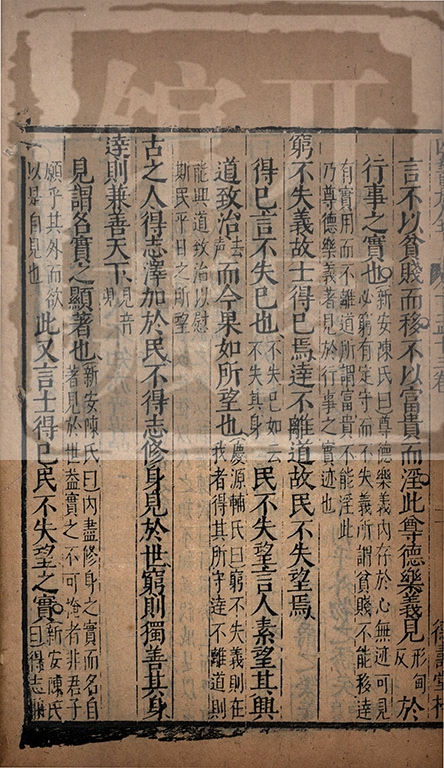 言不以貧賤而移不以富貴而淫此尊德樂義見形甸反於
行事之實也新安陳氏曰尊德樂義內存於心無迹可見必窮有定守而不失義所謂貧賤不能移達
有實用而不離道所謂富貴不能淫此乃尊德樂義者見於行事之實迹也
窮不失義故士得已焉達不離道故民不失望焉
得已言不失已也不失已如云不失其身民不失望言人素望其興
道致治去聲而今果如所望也慶源輔氏曰窮不失義則在我者得其所守達不離道則
能興道致治以慰斯民平日之所望
古之人得志澤加於民不得志修身見於世窮則獨善其身
達則兼善天下見音現
見謂名實之顯著也新安陳氏曰內盡修身之實而名自著見於世蓋實之不可掩者非君子
願乎其外而欲以是自見也此又言士得已民不失望之實新安陳氏曰得志